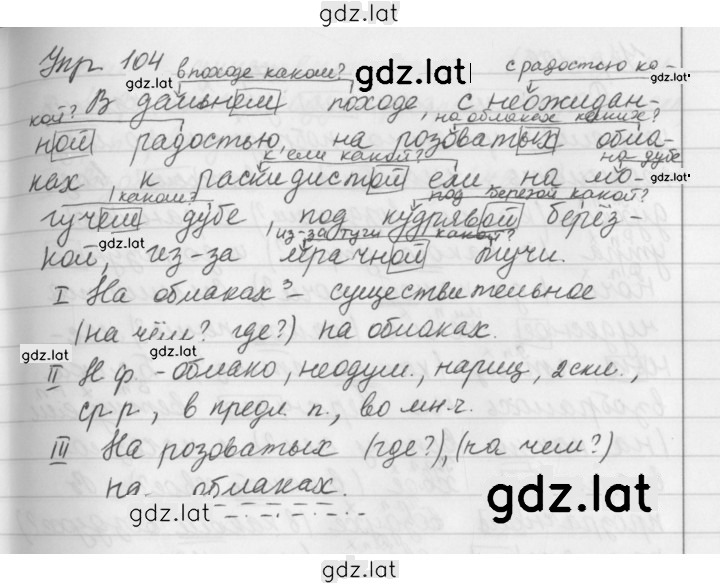 gdz.lat
Упр 104 в походе каком? gdz.lat с радостью ка-
gdz.lat gdz.lat
кой? В дальнем походе, с неожидан-
на облаках каких?
ной радостью, на розоватых обла-
к ели какой? на дубе
ках к раскидистой ели на мо-
gdz.lat
каком? под березой какой?
гучем дубе, под кудрявой берёз-
gdz.lat
из-за тучи какой?
кой, из-за мрачной тучи.
I На облаках³ - существительное
(на чём? где?) на облаках.
gdz.lat gdz.lat
II Н.ф. - облако, неодуш., нариц, 2 скл.,
ср.р., в предл. п., во мн.ч.
III На розоватых (где?), (на чем?)
на облаках.
gdz.lat gdz.lat
gdz.lat